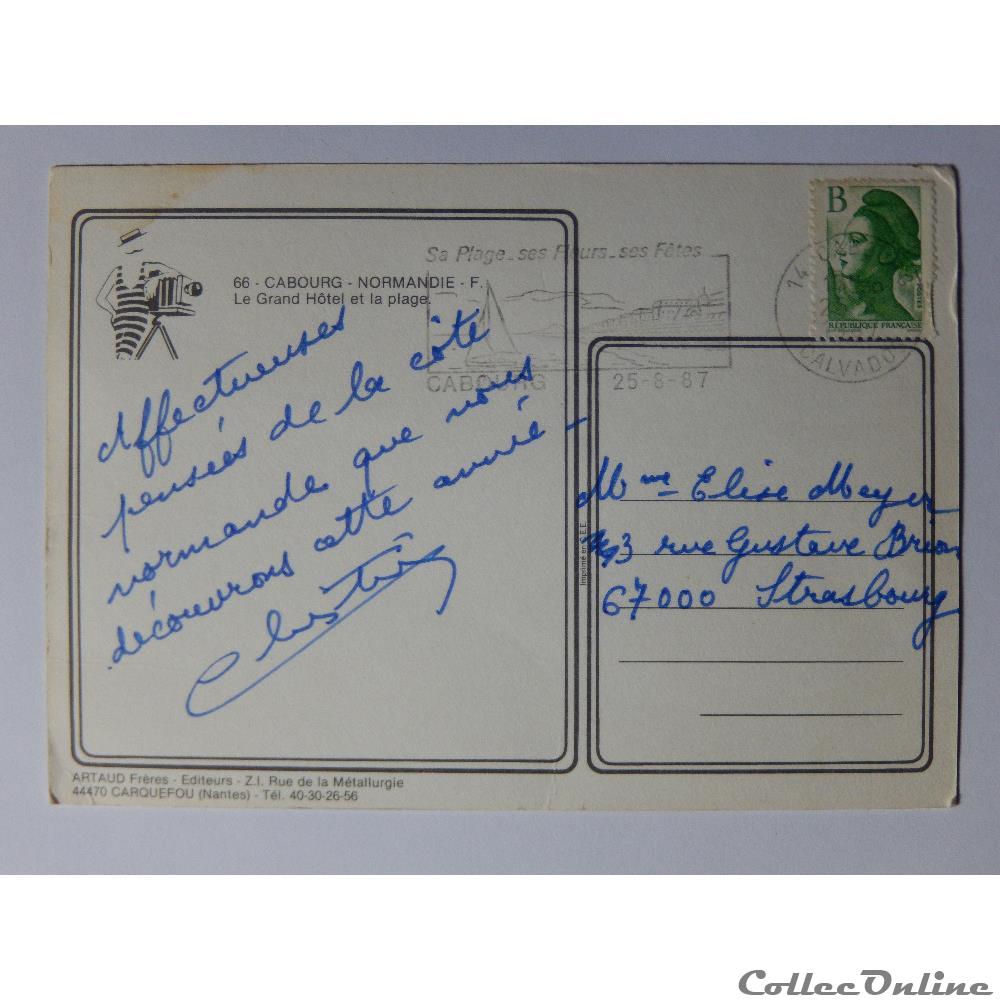 B
RÉPUBLIQUE FRANÇAISE
Sa Plage_ses Fleurs_ses Fêtes
CABOURG 25-8-87
14
CALVADOS
66 - CABOURG - NORMANDIE - F.
Le Grand Hôtel et la plage.
Affectueuses
pensées de la côté
normande que nous
découvrons cette année -
Imprimé en C.E.E.
Mme Elise Meyer
rue Gustave Brion
67000 Strasbourg
ARTAUD Frères - Editeurs - Z.I. Rue de la Métallurgie
44470 CARQUEFOU (Nantes) - Tél. 40-30-26-56
CollecOnline